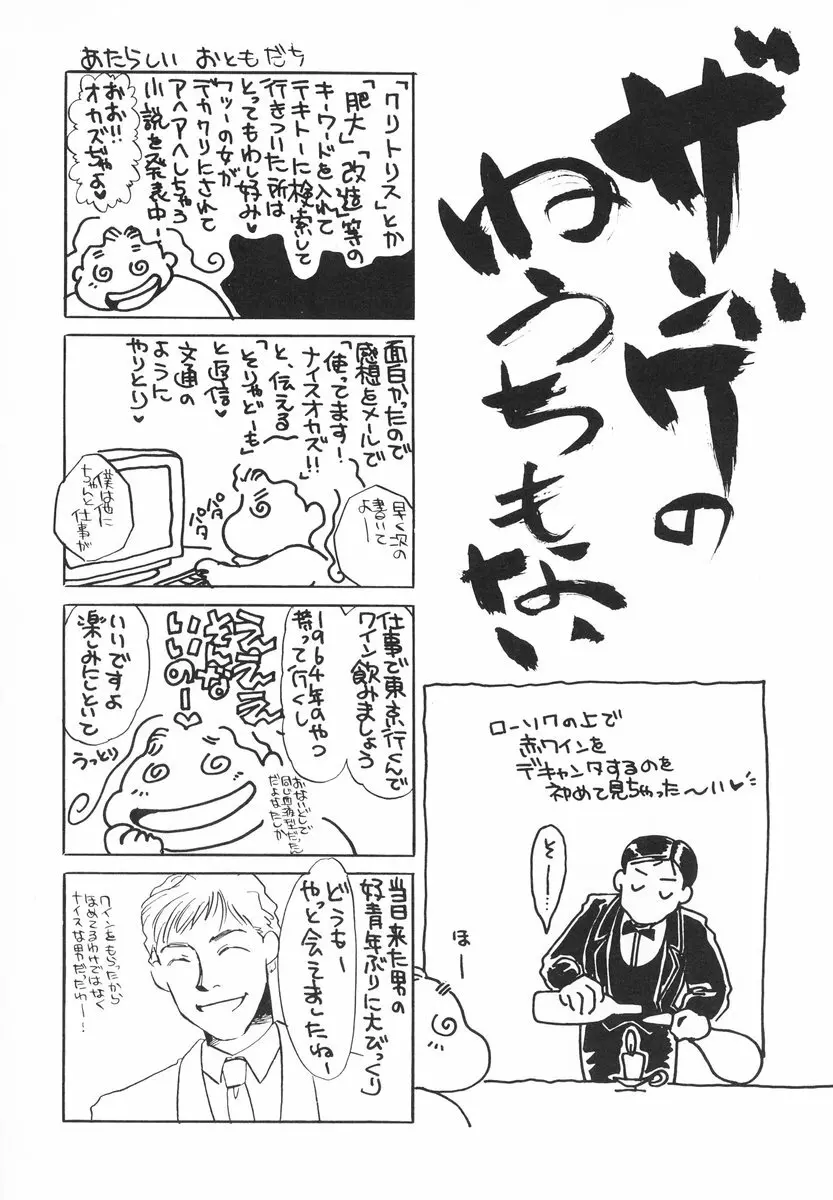 ザンゲの
ねうちもない
あたらしい おともだち
「クリトリス」とか
「肥大」「改造」等の
キーワードを入れて
テキトーに検索して
行きついた所は
とってもわし好み♥
フツーの女が
デカクリにされて
アヘアヘしちゃう
小説を発表中ー
おお!!
オカズぢゃよ♥
面白かったので
感想をメールで
「使ってます!
ナイスオカズ!!」
と、伝える
「そりゃどーも」
と返信♥
文通の
ように
やりとり♥
早く次の
書いて
よー
パタ
パタ
僕は他に
ちゃんと仕事が
仕事で東京行くんで
ワイン飲みましょう
1964年のやつ
持って行くし
ええええ
そんな
いいのー♥
いいですよ
楽しみにしといて
うっとり
おないどしで
同じ血液型だったん
だよなたしか
当日来た男の
好青年ぶりに大びっくり
どうもー
やっと会えましたねー
ワインをもらったから
ほめてるわけではなく
ナイスな男だったわー!
ローソクの上で
赤ワインを
デキャンタするのを
初めて見ちゃった〜い♥
そー…
ほー